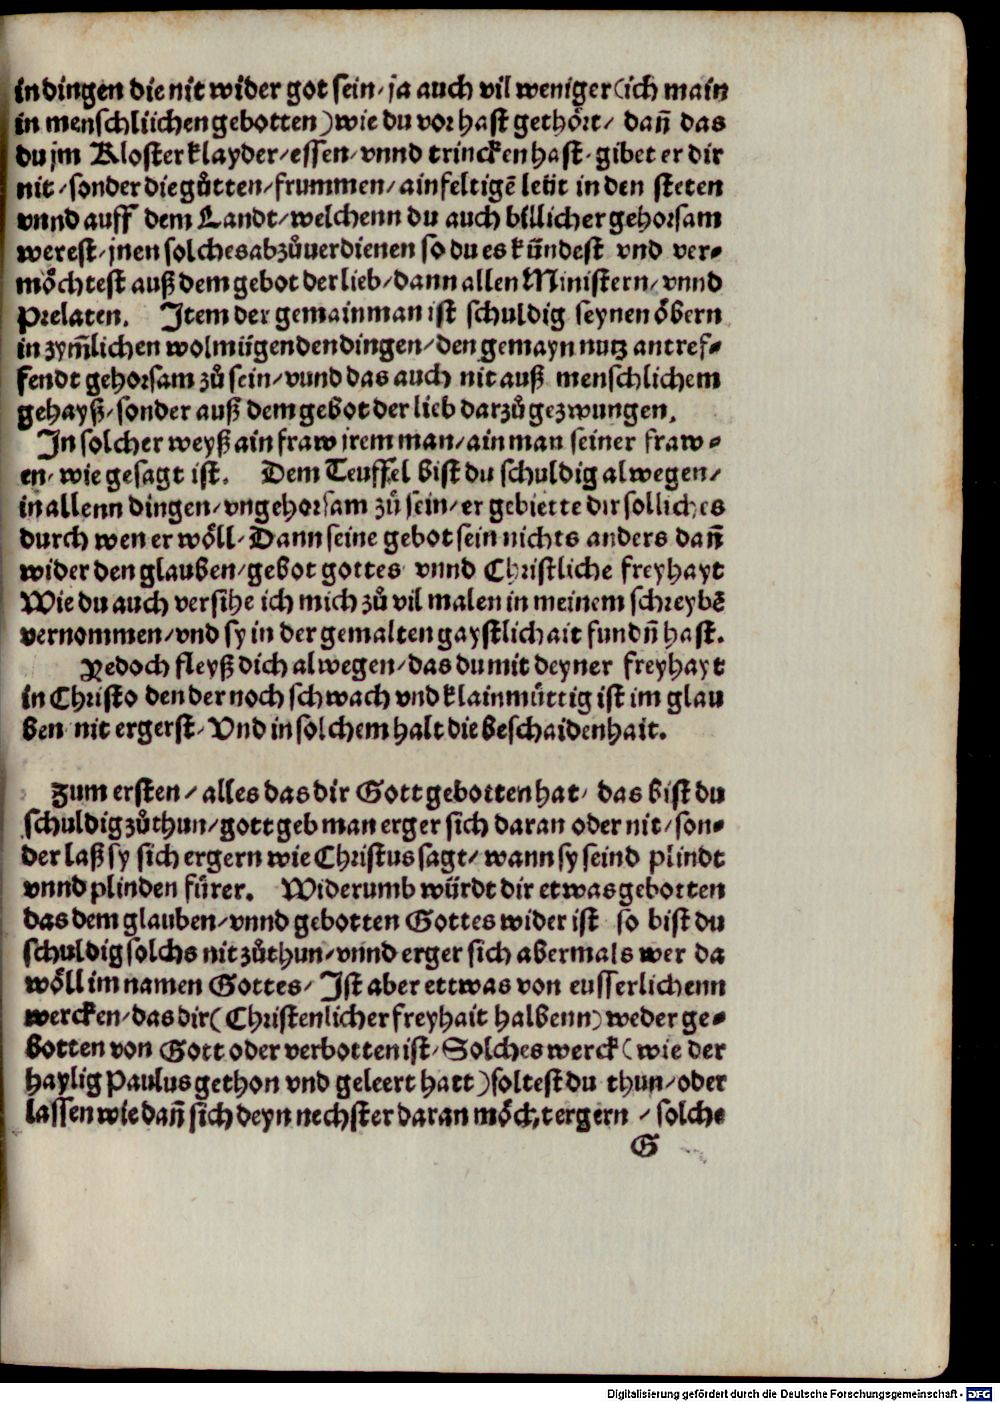 in dingen die nit wider got sein/ ja auch vil weniger (ich main
in menschlichen gebotten) wie du vor hast gethört/ dañ das
du jm Kloster klayder/ essen/ vnnd trincken hast/ gibet er dir
nit/ sonder die gůtten/ frummen/ ainfeltigē leüt in den steten
vnnd auff dem Landt/ welchenn du auch billicher gehorsam
werest/ jnen solches abzůuerdienen so du es kündest vnd ver⸗
möchtest auß dem gebot der lieb/ dann allen Ministern/ vnnd
Prelaten. Item der gemain man ist schuldig seynen öbern
in zym̃lichen wolmügenden dingen/ den gemayn nutz antref⸗
fendt gehorsam zů sein/ vnnd das auch nit auß menschlichem
gehayß/ sonder auß dem gebot der lieb darzů gezwungen.
In solcher weyß ain fraw irem man/ ain man seiner fraw⸗
en/ wie gesagt ist. Dem Teuffel bist du schuldig alwegen/
in allenn dingen/ vngehorsam zů sein/ er gebiette dir solliches
durch wen er wöll/ Dann seine gebot sein nichts anders dañ
wider den glauben/ gebot gottes vnnd Christliche freyhayt
Wie du auch versihe ich mich zů vil malen in meinem schreybē
vernommen/ vnd sy in der gemalten gaystlichait fundñ hast.
Yedoch fleyß dich alwegen/ das du mit deyner freyhayt
in Christo den der noch schwach vnd klainmüttig ist im glau
ben nit ergerst/ Vnd in solchem halt die beschaidenhait.
Zum ersten/ alles das dir Gott gebotten hat/ das bist du
schuldig zůthun/ gott geb man erger sich daran oder nit/ son⸗
der laß sy sich ergern wie Christus sagt/ wann sy seind plindt
vnnd plinden fürer. Widerumb würdt dir etwas gebotten
das dem glauben/ vnnd gebotten Gottes wider ist so bist du
schuldig solchs nit zůthun/ vnnd erger sich abermals wer da
wöll im namen Gottes/ Ist aber ettwas von eusserlichenn
wercken/ das dir (Christenlicher freyhait halbenn) weder ge⸗
botten von Gott oder verbotten ist/ Solches werck (wie der
haylig Paulus gethon vnd geleert hatt) soltest du thun/ oder
lassen wie dañ sich deyn nechster daran möcht ergern / solche
G
Digitalisierung gefördert durch die Deutsche Forschungsgemeinschaft - DFG